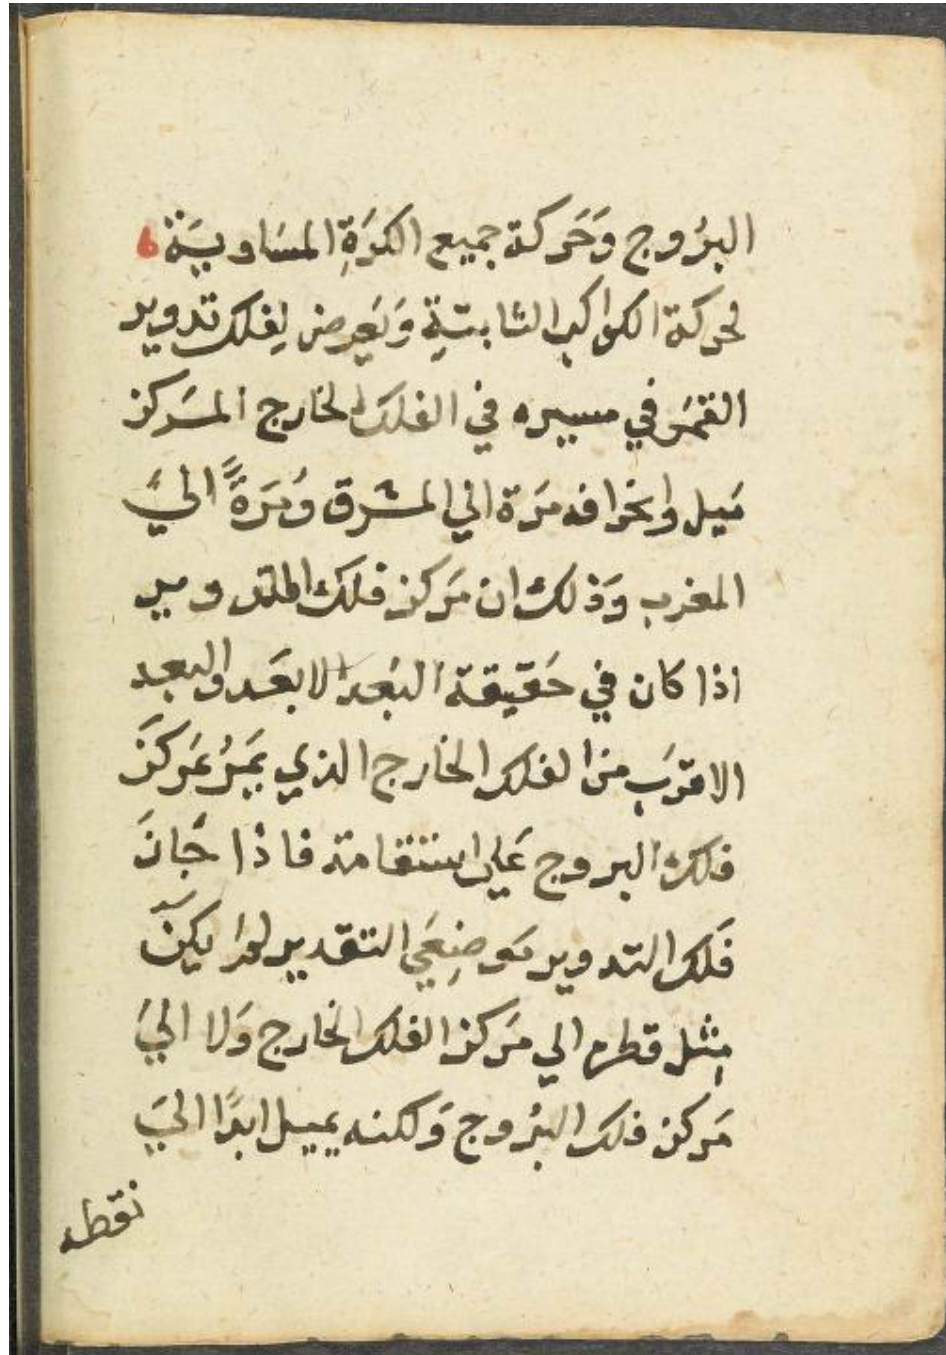 البرُوج وَحَركة جميع الكرَةِ المسَاويَة
لحركة الكواكب الثابتةِ وَيَعرض لِفلك تدوير
القمَر في مسيره في الفلك الخارج المرَكز
مَيل وانحرافه مَرة الي المشرق وَمَرةً اليَ
المغرب وَذلك ان مَركز فلك التدوير
اذا كان في حَقيقة البُعد الابعَد والبعد
الاقرَب من الفلك الخارج الذي يمَرُ بمَركزَ
فلك البروج عَلي استقامة فاذا جَازَ
فَلك التدوير مَوضِعَي التقدير لم يكنَ
مِثل قطره الي مَركز الفلك الخارج وَلا اليَ
مَركز فلك البرُوج وَلكنه يميل ابدًا اليَ
نقطه